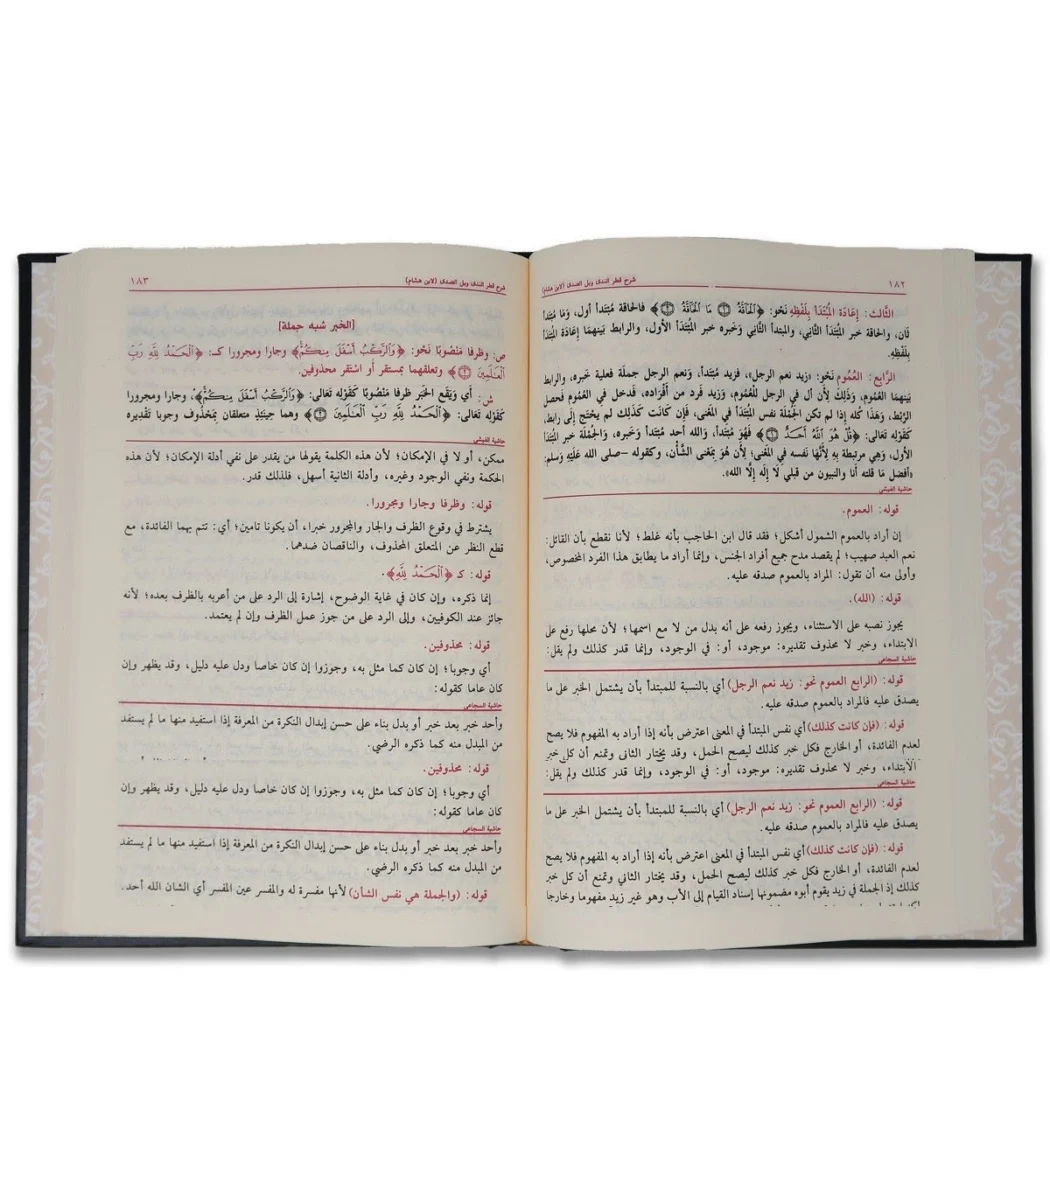 ١٨٢
شرح قطر الندى وبل الصدى (لابن هشام)
الثَّالث: إعَادَة المُبْتَدَأ بِلَفْظِهِ نَحْو: ﴿ٱلْحَاقَّةُ ۝ مَا ٱلْحَاقَّةُ ۝﴾ فالحاقة مُبْتَدأ أول، وَمَا مُبْتَدأ
ثَان، والحاقة خبر المُبْتَدَأ الثَّانِي، والمبتدأ الثَّانِي وَخَبره خبر المُبْتَدَأ الأول، والرابط بَينهمَا إِعَادَة المُبْتَدَأ
بِلَفْظِهِ.
الرَّابع: العُمُوم نَحْو: «زيد نعم الرجل»، فزيد مُبْتَدأ، وَنعم الرجل جملَة فعلية خبره، والرابط
بَينهمَا العُمُوم، وَذَلِكَ لِأَن أل في الرجل للْعُمُوم، وَزيد فَرد من أَفْرَاده، فَدخل في العُمُوم فَحصل
الرَّبْط، وَهَذَا كُله إِذا لم تكن الجُمْلَة نفس المُبْتَدأ في المَعْنى، فَإِن كَانَت كَذَلِك لم يحْتَج إِلَى رابط،
كَقَوْلِه تَعَالَى: ﴿قُلْ هُوَ ٱللَّهُ أَحَدٌ ۝﴾ فَهُوَ مُبْتَدأ، والله أحد مُبْتَدأ وَخَبره، وَالجُمْلَة خبر المُبْتَدأ
الأول، وَهِي مرتبطة بِهِ لِأَنَّهَا نَفسه فِي المَعْنى؛ لِأَن هُوَ بِمَعْنى الشَّأْن، وكقوله -صلى الله عَلَيْهِ وَسلم:
«أفضل مَا قلته أَنا والنبيون من قبلي لَا إِلَه إِلَّا الله».
حاشية الفيشي
قوله: العموم.
إن أراد بالعموم الشمول أشكل؛ فقد قال ابن الحاجب بأنه غلط؛ لأنا نقطع بأن القائل:
نعم العبد صهيب؛ لم يقصد مدح جميع أفراد الجنس، وإنما أراد ما يطابق هذا الفرد المخصوص،
وأولى منه أن تقول: المراد بالعموم صدقه عليه.
قوله: (الله).
يجوز نصبه على الاستثناء، ويجوز رفعه على أنه بدل من لا مع اسمها؛ لأن محلها رفع على
الابتداء، وخبر لا محذوف تقديره: موجود، أو: في الوجود، وإنما قدر كذلك ولم يقل:
حاشية السجاعي
قوله: (الرابع العموم نحو: زيد نعم الرجل) أي بالنسبة للمبتدأ بأن يشتمل الخبر على ما
يصدق عليه فالمراد بالعموم صدقه عليه.
قوله: (فإن كانت كذلك) أي نفس المبتدأ في المعنى اعترض بأنه إذا أراد به المفهوم فلا يصح
لعدم الفائدة، أو الخارج فكل خبر كذلك ليصح الحمل، وقد يختار الثاني وتمنع أن كل خبر
الابتداء، وخبر لا محذوف تقديره: موجود، أو: في الوجود، وإنما قدر كذلك ولم يقل:
حاشية السجاعي
قوله: (الرابع العموم نحو: زيد نعم الرجل) أي بالنسبة للمبتدأ بأن يشتمل الخبر على ما
يصدق عليه فالمراد بالعموم صدقه عليه.
قوله: (فإن كانت كذلك) أي نفس المبتدأ في المعنى اعترض بأنه إذا أراد به المفهوم فلا يصح
لعدم الفائدة، أو الخارج فكل خبر كذلك ليصح الحمل، وقد يختار الثاني وتمنع أن كل خبر
كذلك إذ الجملة في زيد يقوم أبوه مضمونها إسناد القيام إلى الأب وهو غير زيد مفهوما وخارجا
شرح قطر الندى وبل الصدى (لابن هشام)
١٨٣
[الخبر شبه جملة]
ص: وظرفا مَنْصُوبًا نَحْو: ﴿وَٱلرَّكْبُ أَسْفَلَ مِنكُمْ﴾ وجارا ومجرورا كـ: ﴿ٱلْحَمْدُ لِلَّهِ رَبِّ
ٱلْعَٰلَمِينَ ۝﴾ وتعلقهما بمستقر أو اسْتَقر محذوفين.
ش: أي وَيَقَع الخَبَر ظرفا مَنْصُوبًا كَقَوْلِه تَعَالَى: ﴿وَٱلرَّكْبُ أَسْفَلَ مِنكُمْ﴾، وجارا ومجرورا
كَقَوْلِه تَعَالَى: ﴿ٱلْحَمْدُ لِلَّهِ رَبِّ ٱلْعَٰلَمِينَ ۝﴾ وهما حِينَئِذٍ متعلقان بِمَحْذُوف وجوبا تَقْدِيره
حاشية الفيشي
ممكن، أو لا في الإمكان؛ لأن هذه الكلمة يقولها من يقدر على نفي أدلة الإمكان؛ لأن هذه
الحكمة ونفي الوجود وغيره، وأدلة الثانية أسهل، فلذلك قدر.
قوله: وظرفا وجارا ومجرورا.
يشترط في وقوع الظرف والجار والمجرور خبرا، أن يكونا تامين؛ أي: تتم بهما الفائدة، مع
قطع النظر عن المتعلق المحذوف، والناقصان ضدهما.
قوله: كـ ﴿ٱلْحَمْدُ لِلَّهِ﴾.
إنما ذكره، وإن كان في غاية الوضوح، إشارة إلى الرد على من أعربه بالظرف بعده؛ لأنه
جائز عند الكوفيين، وإلى الرد على من جوز عمل الظرف وإن لم يعتمد.
قوله: محذوفين.
أي وجوبا؛ إن كان كما مثل به، وجوزوا إن كان خاصا ودل عليه دليل، وقد يظهر وإن
كان عاما كقوله:
حاشية السجاعي
وأحد خبر بعد خبر أو بدل بناء على حسن إبدال النكرة من المعرفة إذا استفيد منها ما لم يستفد
من المبدل منه كما ذكره الرضي.
قوله: محذوفين.
أي وجوبا؛ إن كان كما مثل به، وجوزوا إن كان خاصا ودل عليه دليل، وقد يظهر وإن
كان عاما كقوله:
حاشية السجاعي
وأحد خبر بعد خبر أو بدل بناء على حسن إبدال النكرة من المعرفة إذا استفيد منها ما لم يستفد
من المبدل منه كما ذكره الرضي.
قوله: (والجملة هي نفس الشأن) لأنها مفسرة له والمفسر عين المفسر أي الشأن الله أحد.